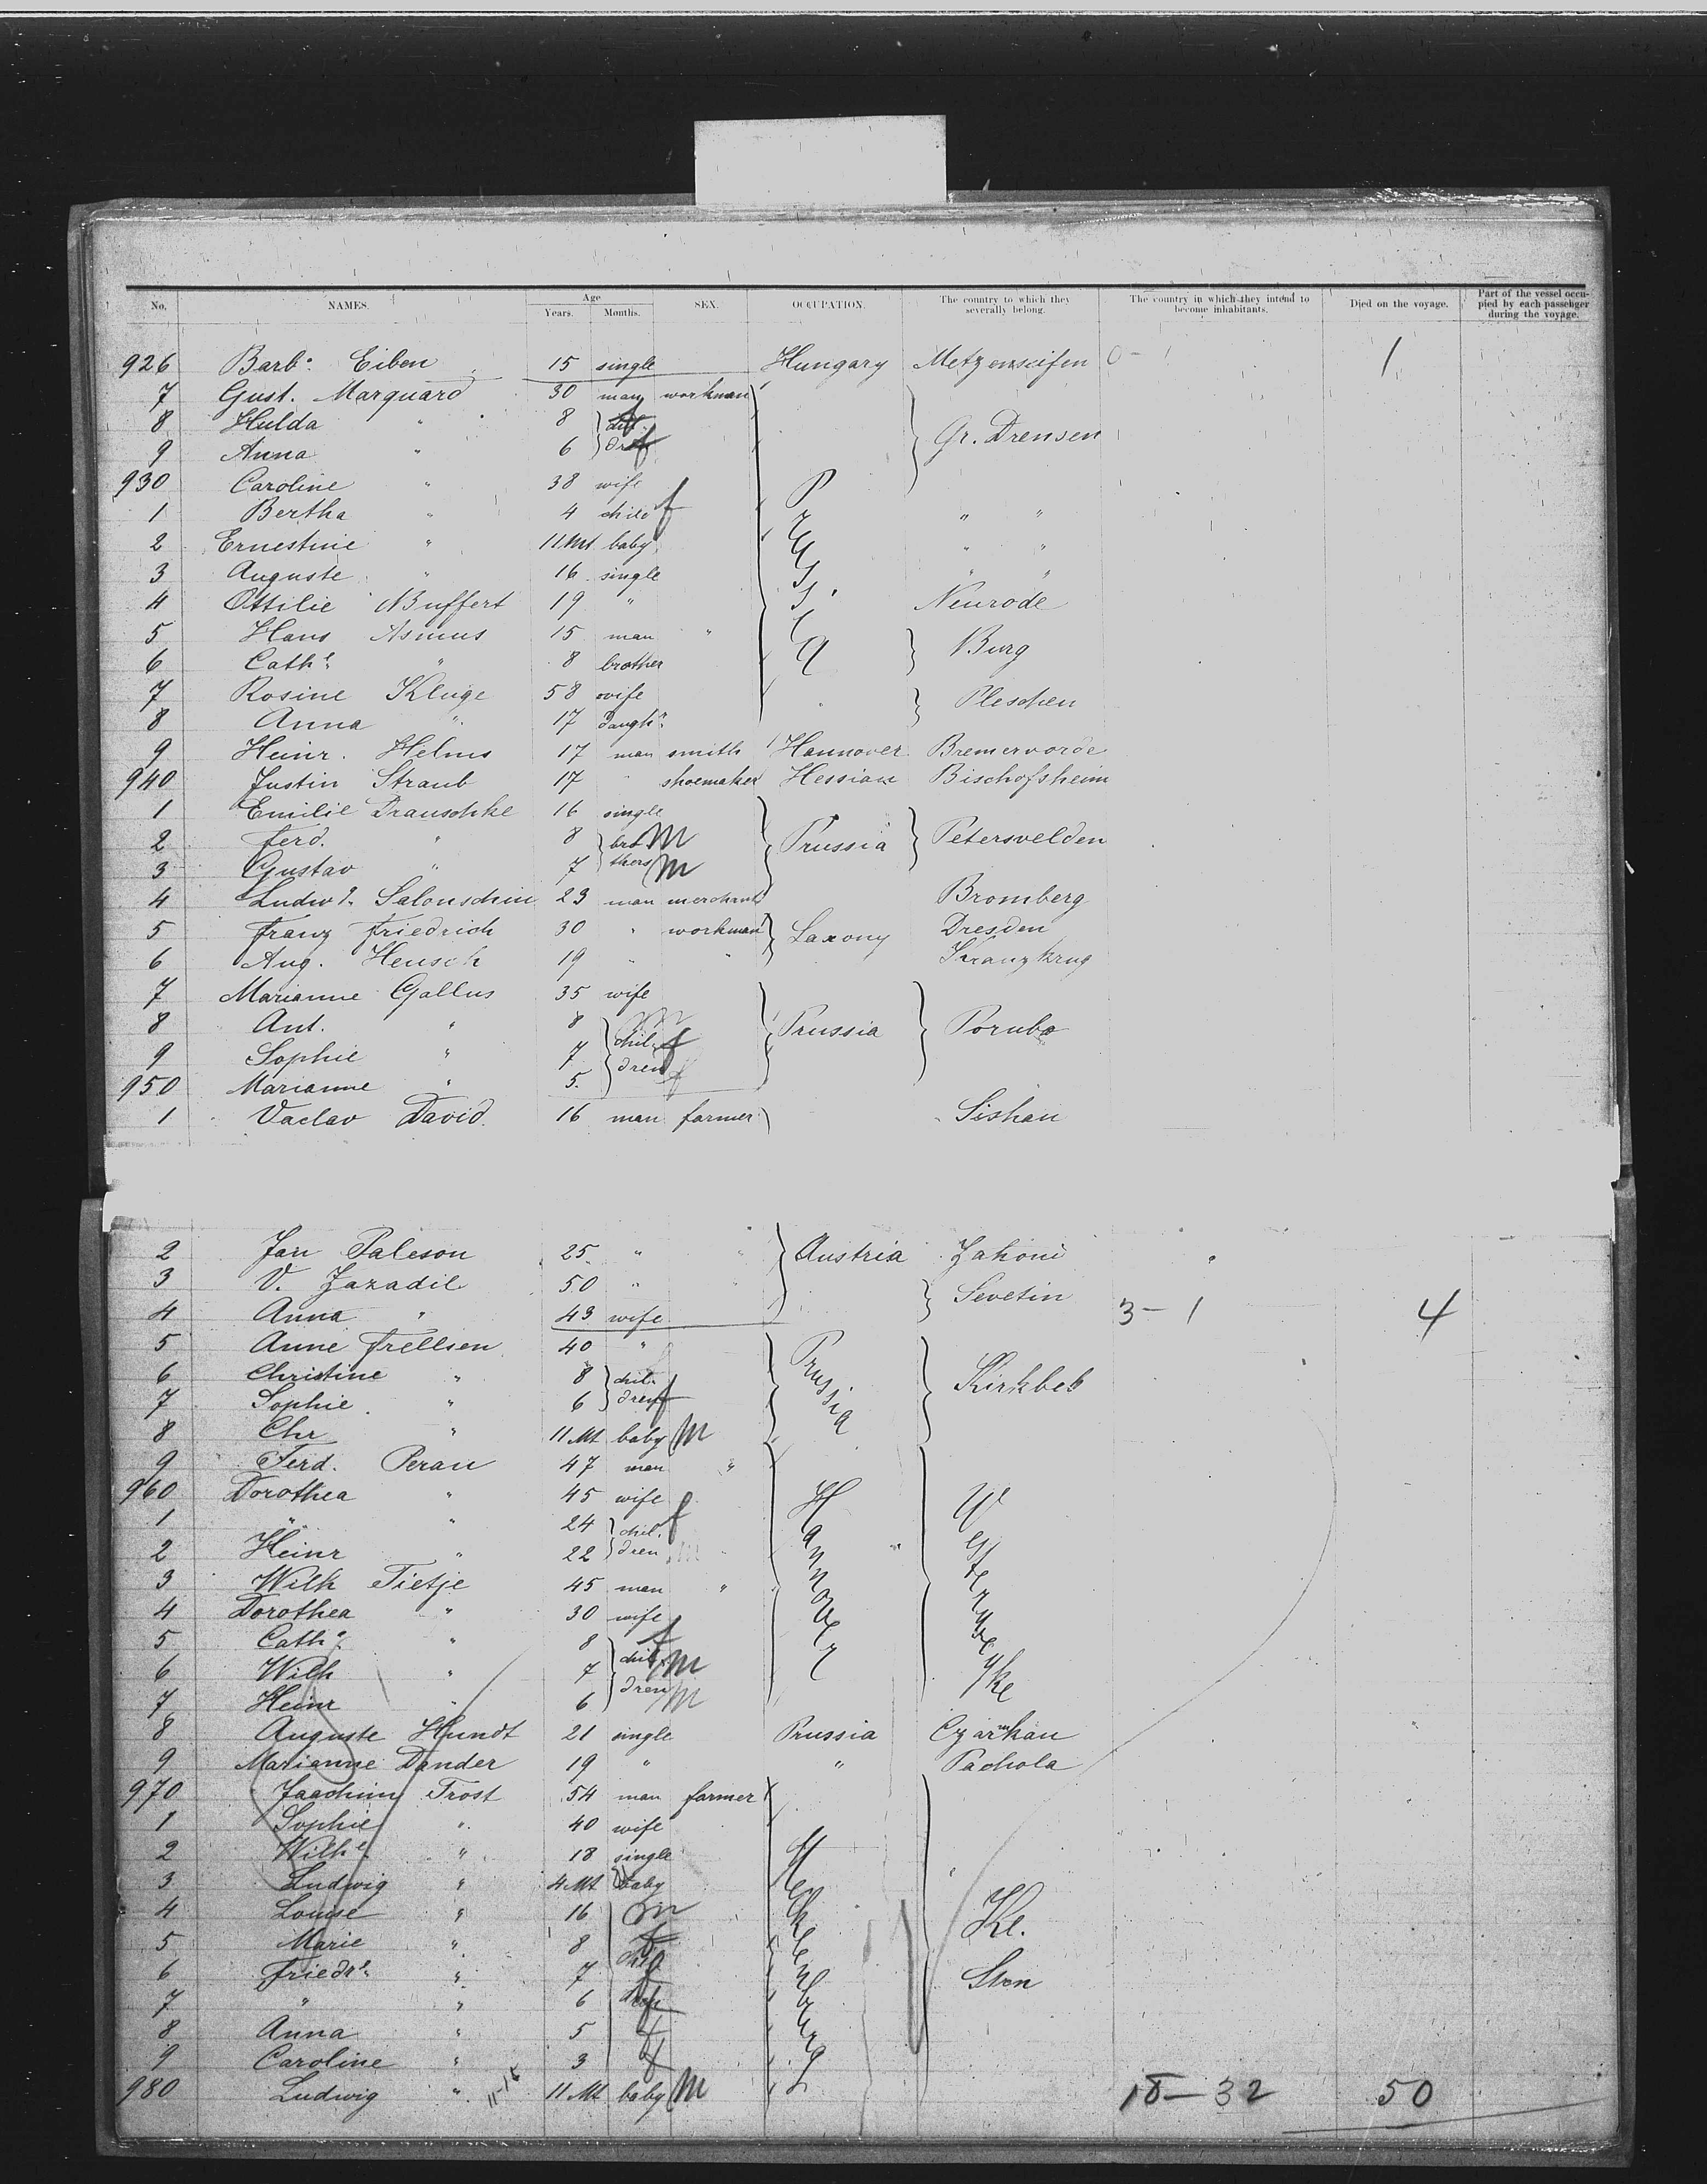 No. NAMES. Age Years. Months. SEX. OCCUPATION. The country to which they severally belong. The country in which they intend to become inhabitants. Died on the voyage. Part of the vessel occupied by each passenger during the voyage.
926 Barbᵃ Eiben 15 single Hungary Metzenseifen 0 - 1 1
7 Gust. Marquard 30 man workman
8 Hulda " 8 chil f Gr. Drensen
9 Anna " 6 dren f
930 Caroline " 38 wife Prussia
1 Bertha " 4 child f " "
2 Ernestine " 11 Mt baby " "
3 Auguste " 16 single " "
4 Ottilie Buffert 19 " Neurode
5 Hans Asmus 15 man " Burg
6 Cathᵉ " 8 brother
7 Rosine Kluge 58 wife Pleschen
8 Anna " 17 daughʳ
9 Heinr. Helms 17 man smith Hannover Bremervorde
940 Justin Straub 17 " shoemaker Hessian Bischofsheim
1 Emilie Drauschke 16 single
2 Ferd. " 8 bro M Prussia Petersvelden
3 Gustav " 7 thers M
4 Ludwᵍ Salonschin 23 man merchant Bromberg
5 Franz Friedrich 30 " workman Saxony Dresden
6 Aug. Hensch 19 " " Kranzkrug
7 Marianne Gallus 35 wife
8 Ant. " 8 m Prussia Poruba
9 Sophie " 7 chil f
950 Marianne " 5 dren f
1 Vaclav David 16 man farmer Sishan
2 Jan Paleson 25 " " Austria Zahoni
3 V. Zazadil 50 " " Sevetin
4 Anna " 43 wife 3 - 1 4
5 Anne Frellsen 40 " Prussia
6 Christine " 8 chil- Kirkbeb
7 Sophie " 6 dren f
8 Chr " 11 Mt baby M
9 Ferd. Perau 47 man "
960 Dorothea " 45 wife Hannover
1 " " 24 chil. f
2 Heinr " 22 dren m
3 Wilh Tietje 45 man "
4 Dorothea " 30 wife
5 Cathᵉ " 8 f
6 Wilh " 7 chil. M
7 Heinr " 6 dren M
8 Auguste Hundt 21 single Prussia Czarnkau
9 Marianne Dander 19 " " Pachola
970 Joachim Trost 54 man farmer
1 Sophie " 40 wife
2 Wilhᵉ " 18 single Meklenburg
3 Ludwig " 4 Mt baby
4 Louise " 16 m Kl.
5 Marie " 8 f
6 Friedrᵉ " 7 chil f Sten
7 " " 6 dren f
8 Anna " 5 f
9 Caroline " 3 f
980 Ludwig " 11-15 11 Mt baby M 18 - 32 50